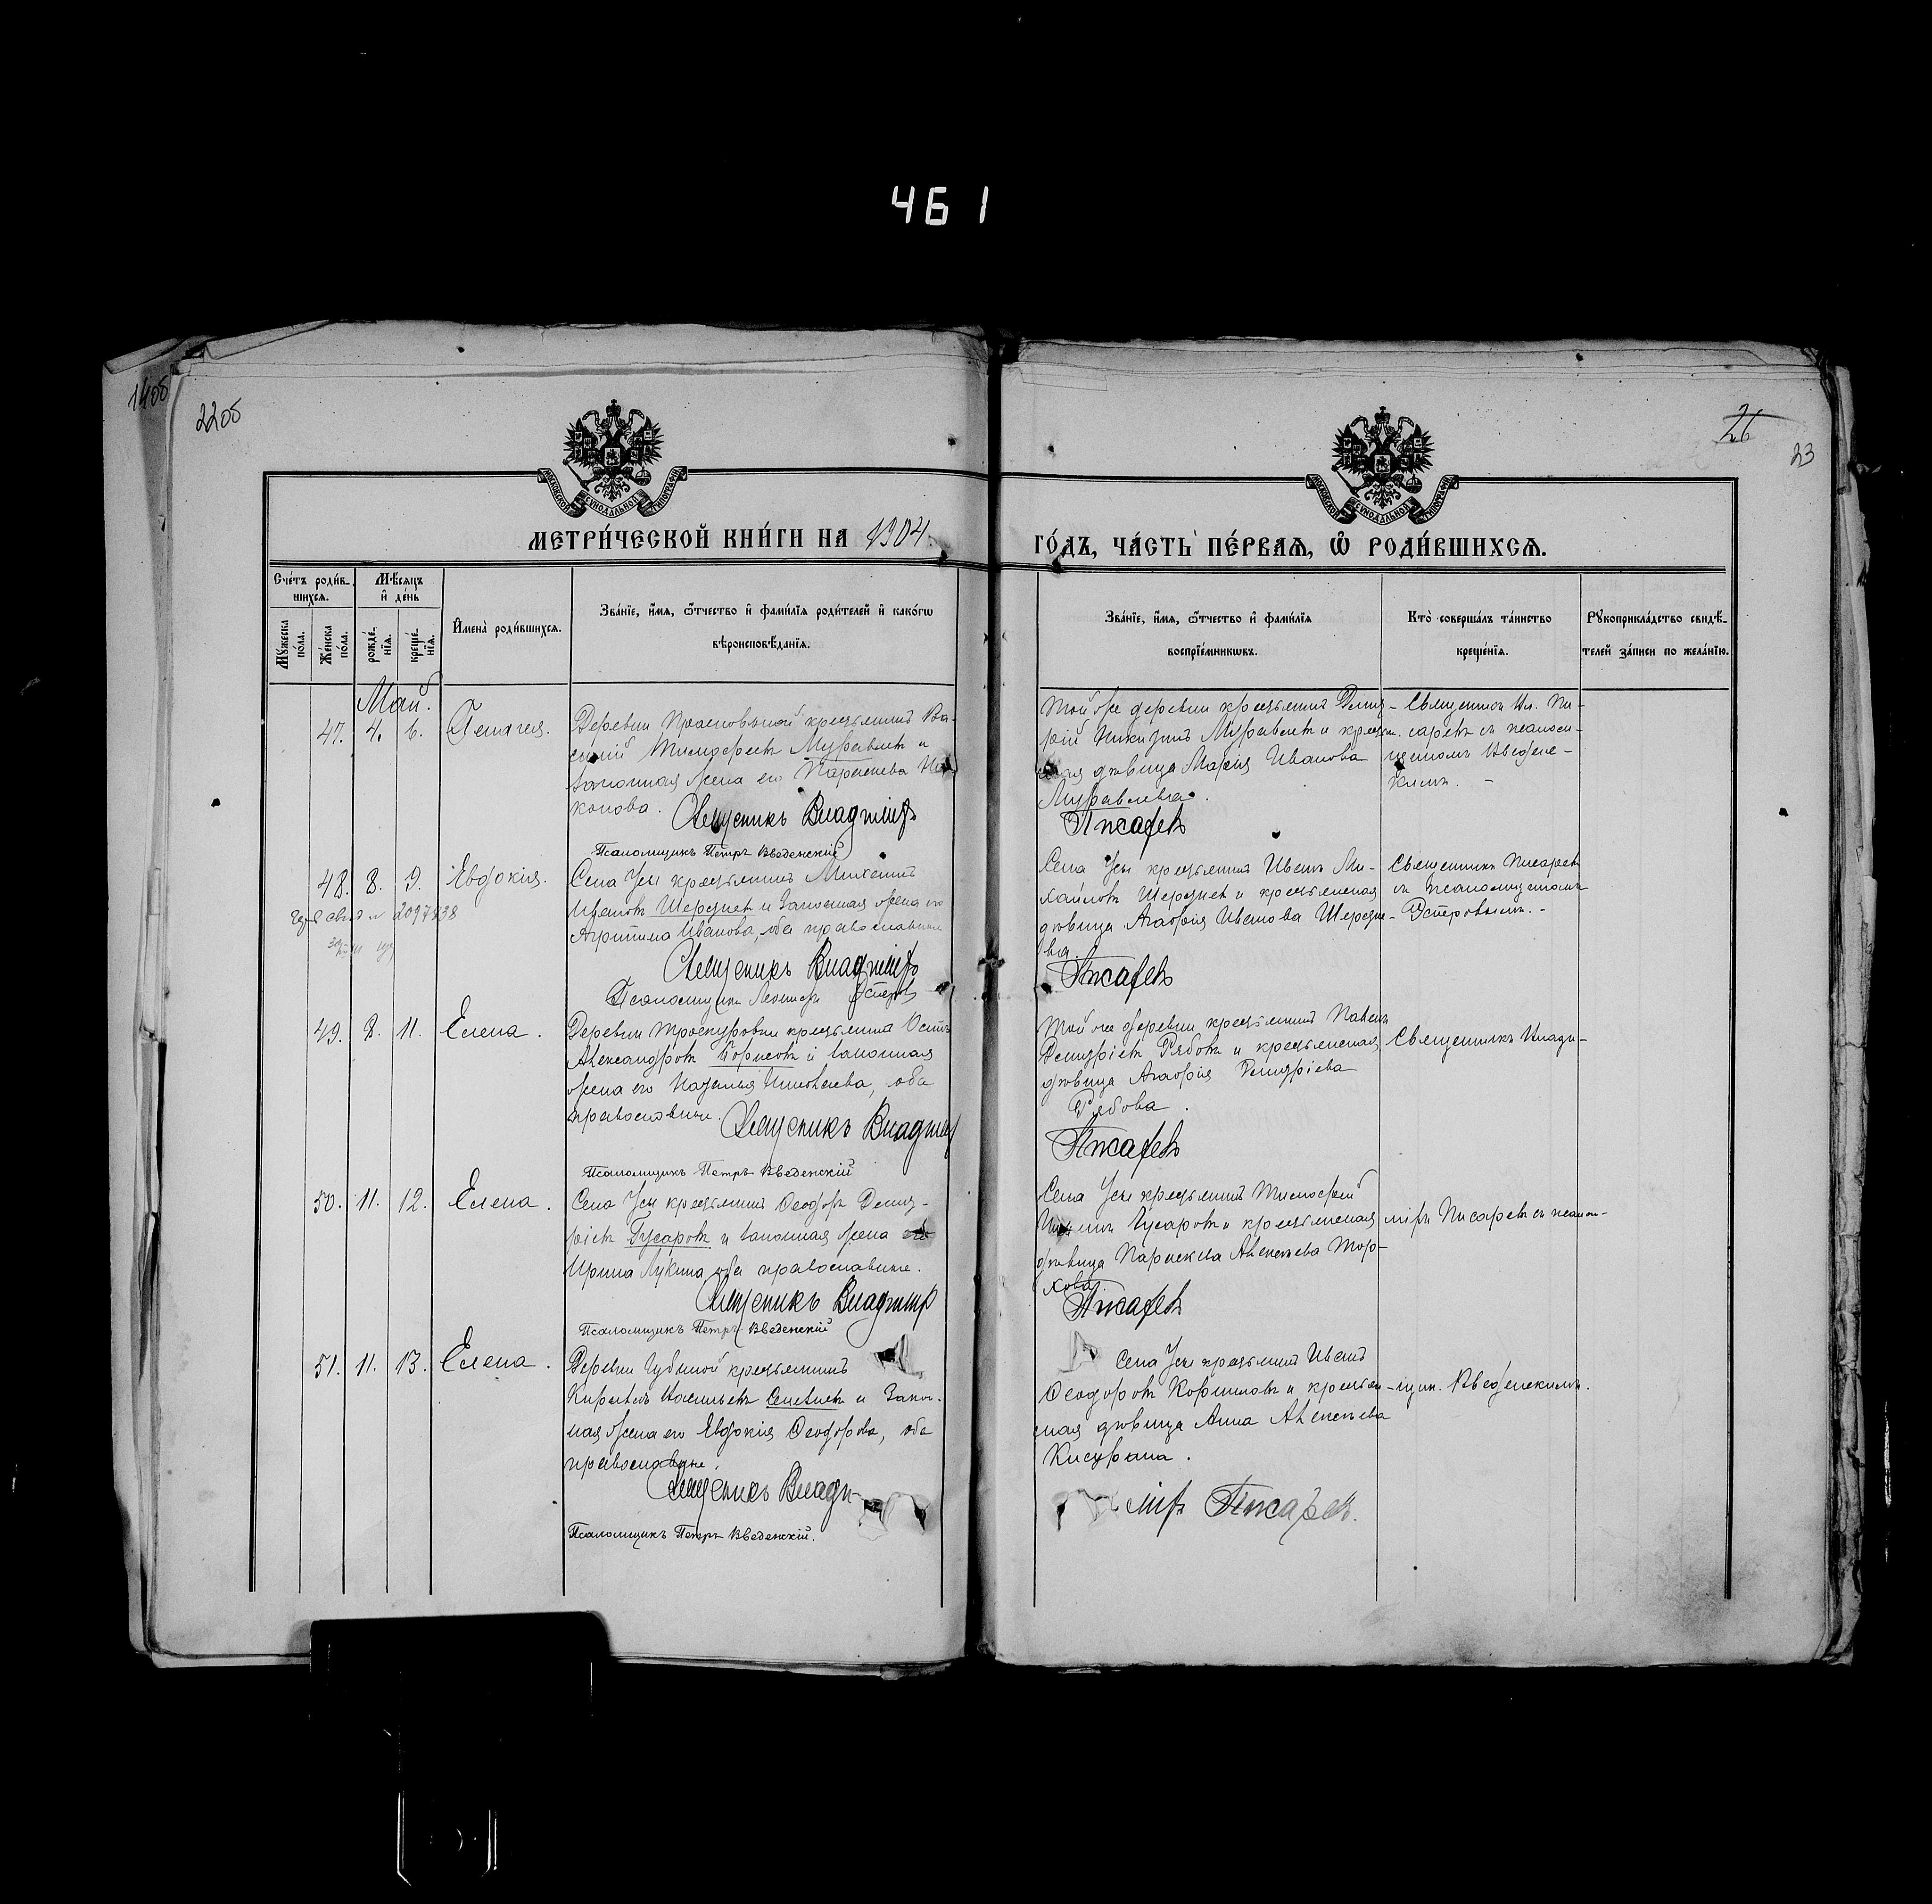 461
1405
2205
26
23
МОСКОВСКОЙ СѴНОДАЛЬНОЙ ТИПОГРАФІИ
МОСКОВСКОЙ СѴНОДАЛЬНОЙ ТИПОГРАФІИ
МЕТРИ́ЧЕСКОЙ КНИ́ГИ НА 1904.
ГО́ДЪ, ЧА́СТЬ ПЕ́РВАѦ, Ѡ҆ РОДИ́ВШИХСѦ.
Сче́тъ роди́в-
шихсѧ.
Мѣ́сѧцъ
и҆ де́нь
Мꙋ́жеска
по́ла.
Же́нска
по́ла.
рожде́-
нїѧ.
креще́-
нїѧ.
И҆мена̀ роди́вшихсѧ.
Зва́нїе, и҆́мѧ, ѻ҆́тчество и҆ фами́лїѧ роди́телей и҆ како́гѡ
вѣроисповѣ́данїѧ.
Зва́нїе, и҆́мѧ, ѻ҆́тчество и҆ фами́лїѧ
воспрїе́мникѡвъ.
Кто̀ соверша́лъ та́инство
креще́нїѧ.
Рꙋкоприкла́дство свидѣ́-
телей за́писи по жела́нїю.
Май.
47. 4. 6. Пелагея.
Деревни крестьянинъ Ва-
силій Тимофеевъ Муравлевъ и
законная жена его Параскева Ни-
конова.
Священникъ Владиміръ
Псаломщикъ Петръ Введенскій
Той же деревни крестьянинъ Димит-
рій Никитинъ Муравлевъ и крестьян-
ская дѣвица Марія Иванова
Муравлева.
Писаревъ
Священникъ Вл. Пи-
саревъ съ псалом-
щикомъ Введенс-
кимъ. -
48. 8. 9. Евдокія.
2097838
Села Усы крестьянинъ Михаилъ
Ивановъ Шерстневъ и законная жена его
Агрипина Иванова, оба православные
Священникъ Владиміръ
Псаломщикъ Остров
Села Усы крестьянинъ Иванъ Ми-
хайловъ Шерстнев и крестьянская
дѣвица Агафія Иванова Шерстне-
ва.
Писаревъ
Священникъ Писаревъ
съ псаломщикомъ
Островымъ. -
49. 8. 11. Елена.
Деревни Проскуровки крестьянинъ
Александровъ Борисовъ и законная
жена его Наталья, оба
православные.
Священникъ Владимір
Псаломщикъ Петръ Введенскій
Той же деревни крестьянинъ Павелъ
Димитріевъ Рябовъ и крестьянская
дѣвица Агафія Димитріева
Рябова.
Писаревъ
Священникъ Влади-
50. 11. 12. Елена.
Села Усы крестьянинъ Ѳеодоръ Димит-
ріевъ Гусаровъ и законная жена его
Ирина Лукина, оба православные.
Священникъ Владимір
Псаломщикъ Петръ Введенскій
Села Усы крестьянинъ Тимофей
Гусаровъ и крестьянская
дѣвица Параскева Алексѣева Тор-
хова
Писаревъ
міръ Писаревъ съ псалом-
51. 11. 13. Елена.
Деревни Губиной крестьянинъ
Васильевъ и закон-
ная жена его Евдокія Ѳеодорова, оба
православные.
Священникъ Влади-
Псаломщикъ Петръ Введенскій.
Села Усы крестьянинъ Иванъ
Ѳеодоровъ Корниловъ и крестьян-
ская дѣвица Анна Алексѣева
міръ Писаревъ.
щик. Введенскимъ.